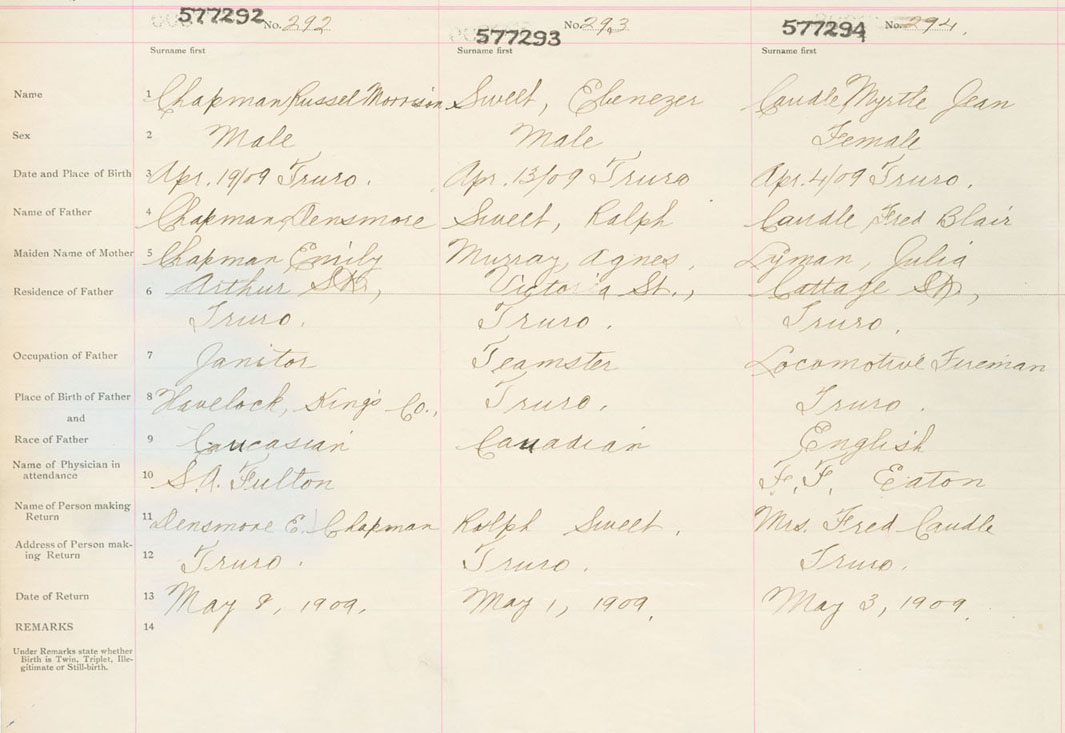 577292 No. 292 577293 No. 293 577294 No. 294.
Surname first Surname first Surname first
Name 1 Chapman Russel Morrison Sweet, Ebenezer Caudle Myrtle Jean
Sex 2 Male Male Female
Date and Place of Birth 3 Apr. 19/09 Truro. Apr. 13/09 Truro Apr. 4/09 Truro.
Name of Father 4 Chapman, Densmore Sweet, Ralph Caudle Fred Blair
Maiden Name of Mother 5 Chapman Emily Murray, Agnes, Lyman, Julia
Residence of Father 6 Arthur St., Victoria St., Cottage St.,
Truro. Truro. Truro.
Occupation of Father 7 Janitor Teamster Locomotive Fireman
Place of Birth of Father 8 Havelock, King's Co., Truro. Truro.
and
Race of Father 9 Caucasian Canadian English
Name of Physician in
attendance 10 S.A. Fulton F. F. Eaton
Name of Person making
Return 11 Densmore E. Chapman Ralph Sweet. Mrs. Fred Caudle
Address of Person mak-
ing Return 12 Truro. Truro. Truro.
Date of Return 13 May 8, 1909. May 1, 1909. May 3, 1909.
REMARKS 14
Under Remarks state whether
Birth is Twin, Triplet, Ille-
gitimate or Still-birth.